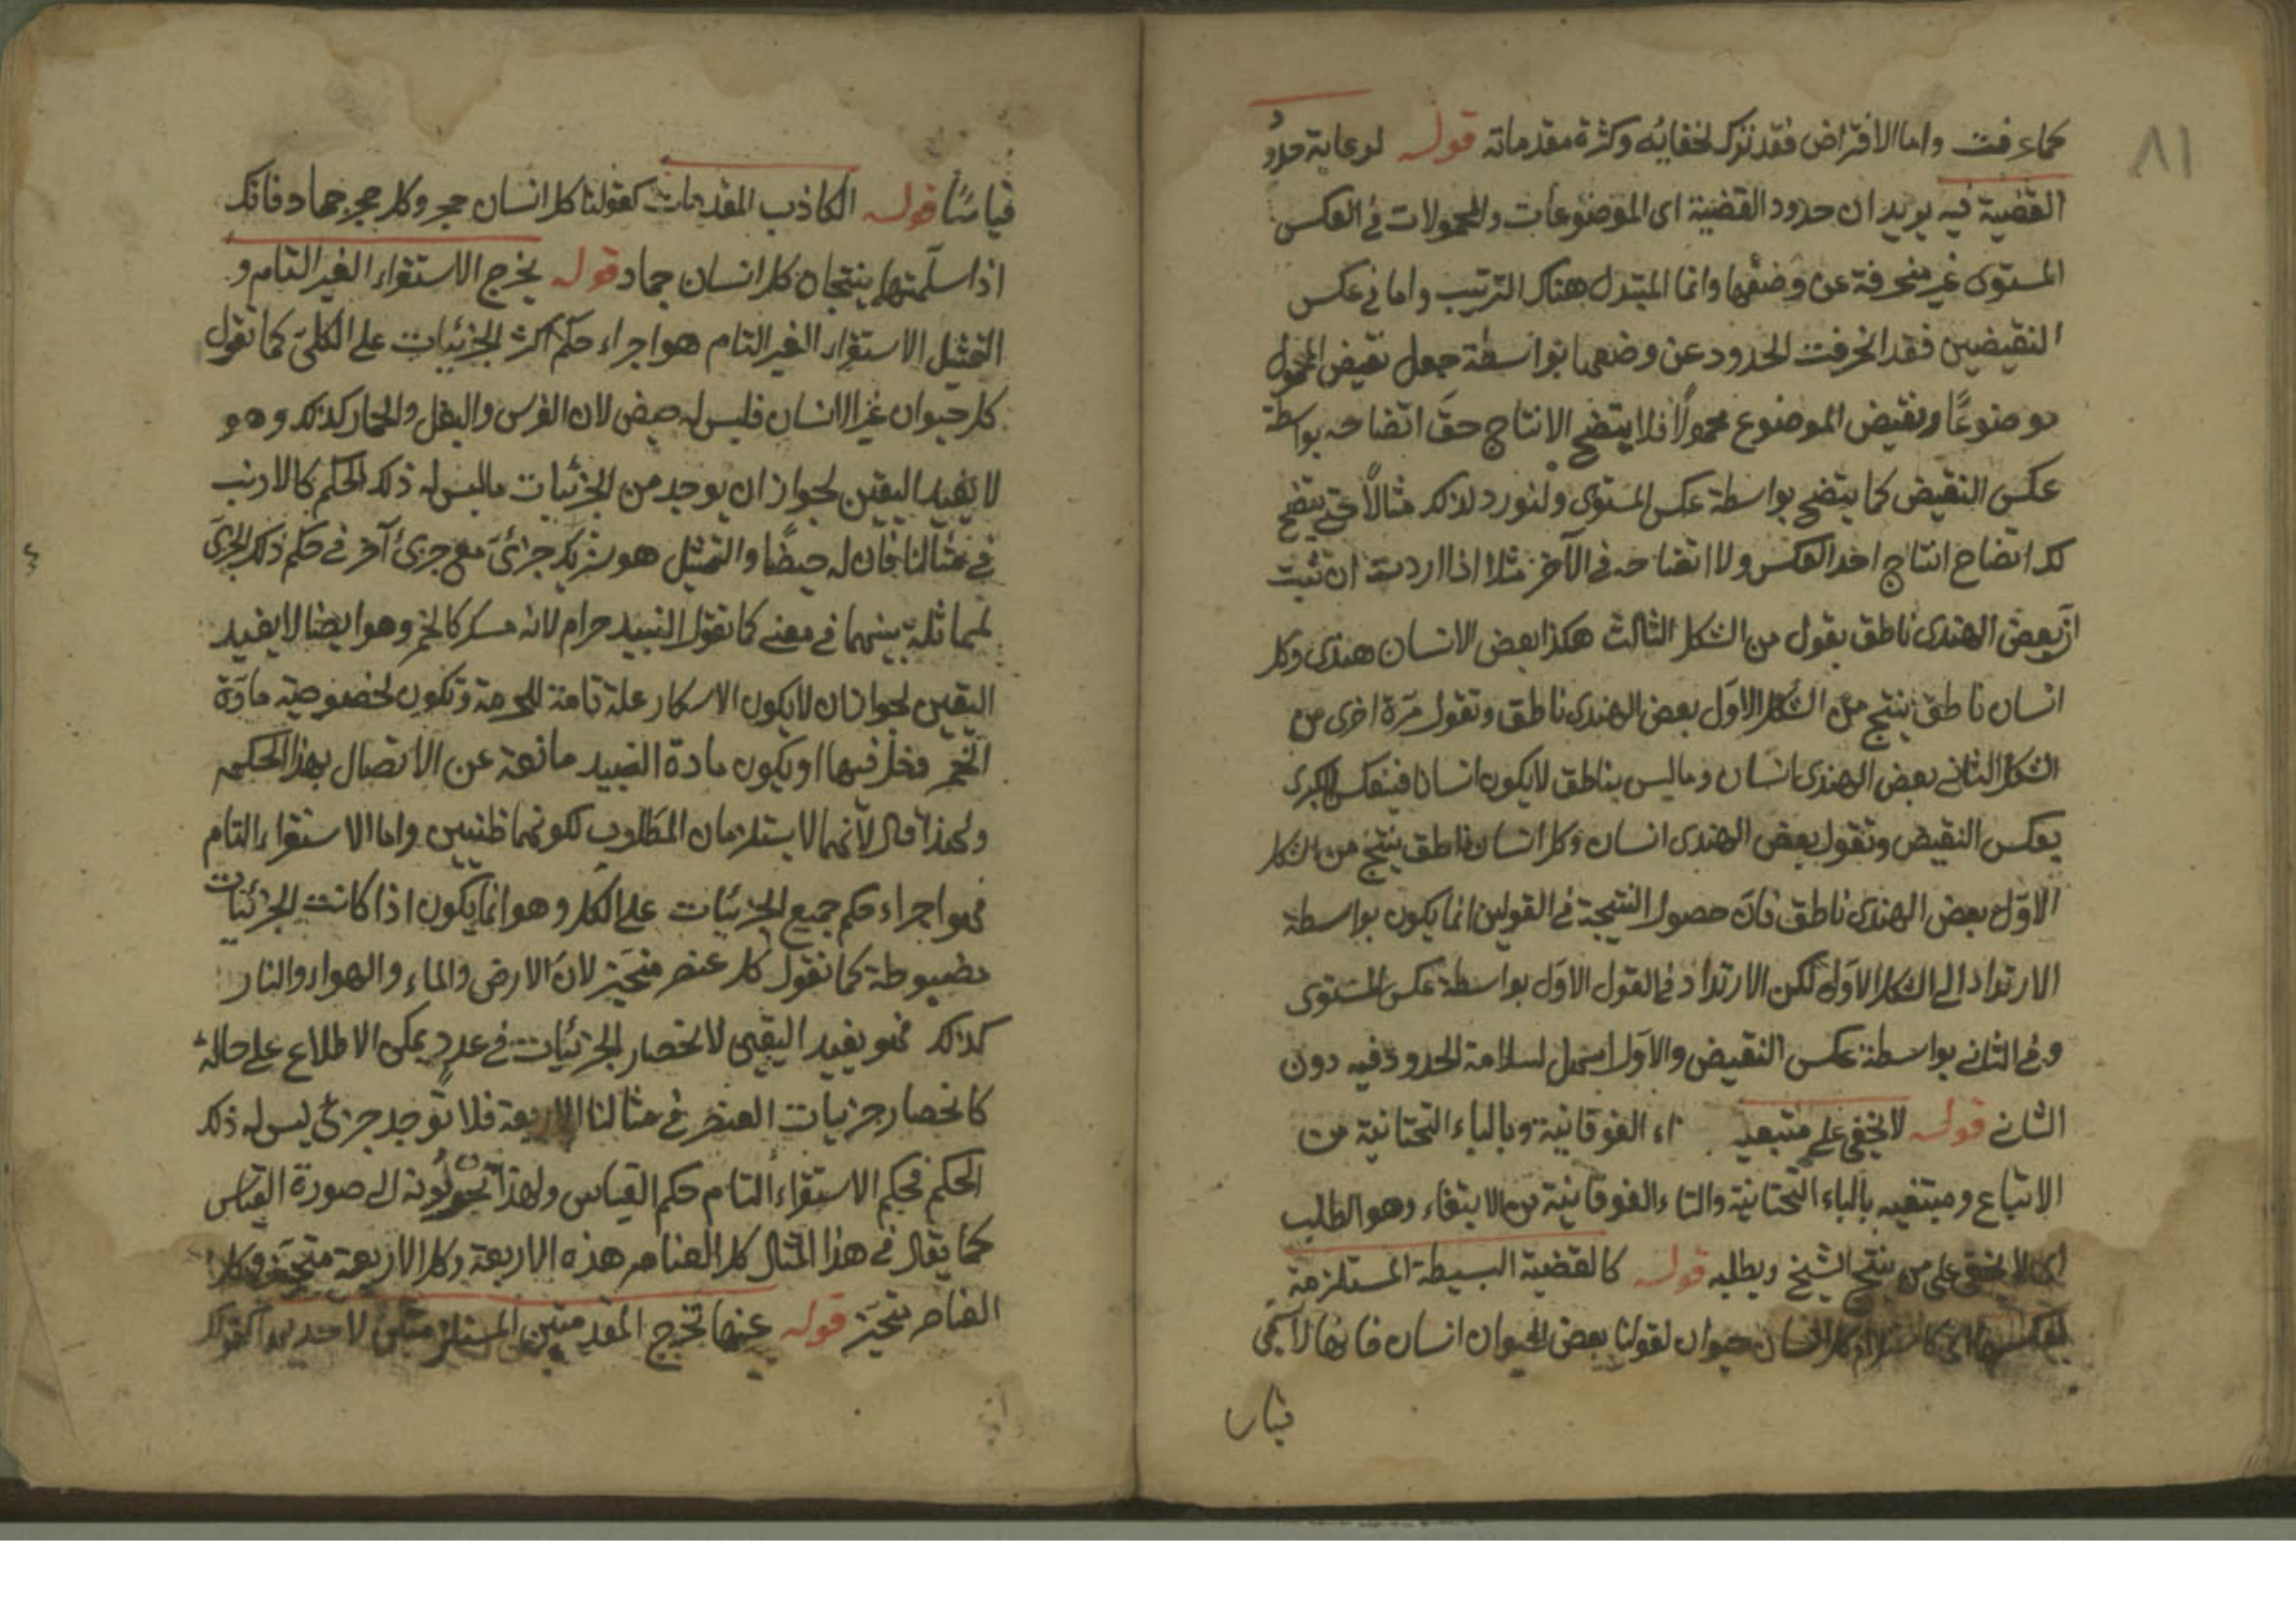 ٨١
كما عرفت واما الافتراض فقد ترك لخفائه وكثرة مقدماته قوله لرعاية حدود
القضية فيه يريد ان حدود القضية اى الموضوعات والمحمولات فى العكس
المستوى غير منحرفة عن وضعها وانما المتبدل هناك الترتيب واما فى عكس
النقيضين فقد انحرفت الحدود عن وضعها بواسطة جعل نقيض المحمول
موضوعًا ونقيض الموضوع محمولاً فلا يتضح الانتاج حقّ اتضاحه بواسطة
عكس النقيض كما يتضح بواسطة عكس المستوى ولنورد لذلك مثالاً حتى يتضح
لك اتضاح انتاج احد العكس ولا اتضاحه فى الآخر مثلا اذا اردت ان تثبت
ان بعض الهندى ناطق يقول من الشكل الثالث هكذا بعض الانسان هندى وكل
انسان ناطق ينتج من الشكل الاول بعض الهندى ناطق وتقول مرّة اخرى من
الشكل الثانى بعض الهندى انسان وما ليس بناطق لا يكون انسانا فينعكس الكبرى
بعكس النقيض وتقول بعض الهندى انسان وكل انسان ناطق ينتج من الشكل
الاوّل بعض الهندى ناطق فانّ حصول النتيجة فى القولين انما يكون بواسطة
الارتداد الى الشكل الاول لكن الارتداد فى القول الاول بواسطة عكس المستوى
وفى الثانى بواسطة عكس النقيض والاول اسهل لسلامة الحدود فيه دون
الثانى قوله لا يخفى على متتبعيه اء الفوقانية وبالباء التحتانية من
الاتباع ومبتغيه بالباء التحتانية والتاء الفوقانية من الابتغاء وهو الطلب
لا يخفى على من يتتبع الشيخ ويطلبه قوله كالقضية البسيطة المستلزمة
لعكسها كل انسان حيوان لقولنا بعض الحيوان انسان فانها لا
قياسا
قياسًا قوله الكاذب المقدمات كقولنا كل انسان حجر وكل حجر جماد فانك
اذا سلمتها ينتجان كل انسان جماد قوله يخرج الاستقراء الغير التام و
التمثيل الاستقراء الغير التام هو اجراء حكم اكثر الجزئيات على الكلى كما تقول
كل حيوان غير الانسان فليس له حيض لان الفرس والبغل والحمار كذلك وهو
لا يفيد اليقين لجواز ان يوجد من الجزئيات ما ليس له ذلك الحكم كالارنب
فى مثالنا فان له حيضًا والتمثيل هو شريك جزئى مع جزئ آخر فى حكم ذلك الجزئ
لمماثلة بينهما فى معنى كما تقول النبيد حرام لانه مسكر كالخمر وهو ايضا لا يفيد
اليقين لجواز ان لا يكون الاسكار علة تامة للحرمة وتكون لخصوصية مادّة
الخمر دخل فيها او يكون مادة النبيد مانعة عن الاتصال بهذا الحكم
ولهذا قال لانهما لا يستلزمان المطلوب لكونهما ظنيين واما الاستقراء التام
فهو اجراء حكم جميع الجزئيات على الكل وهو انما يكون اذا كانت الجزئيات
مضبوطة كما تقول كل عنصر متحيز لان الارض والماء والهواء والنار
كذلك فهو يفيد اليقين لانحصار الجزئيات فى عددٍ يمكن الاطلاع على حاله
كانحصار جزيات العنصر فى مثالنا الاربعة فلا توجد جزئ ليس له ذلك
الحكم فحكم الاستقراء التام حكم القياس ولهذا تحولونه الى صورة القياس
كما يقال فى هذا المثال كل العناصر هذه الاربعة وكل الاربعة متحيز وكل
العناصر متحيز قوله عنها تخرج المقدمتين المستلزمتين لاحديهما كقولك